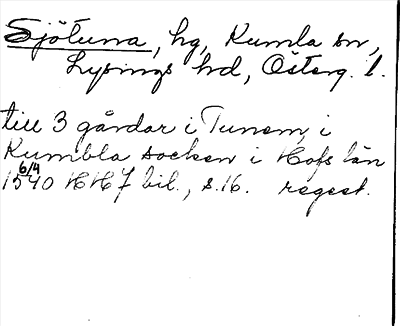 Sjötuna, hg, Kumla sn,
Lysings hd, Österg. l.
till 3 gårdar i Tunom, i
Kumbla socken i Hofs län
6/4
1540 HH 7 bil., s.16. regest.